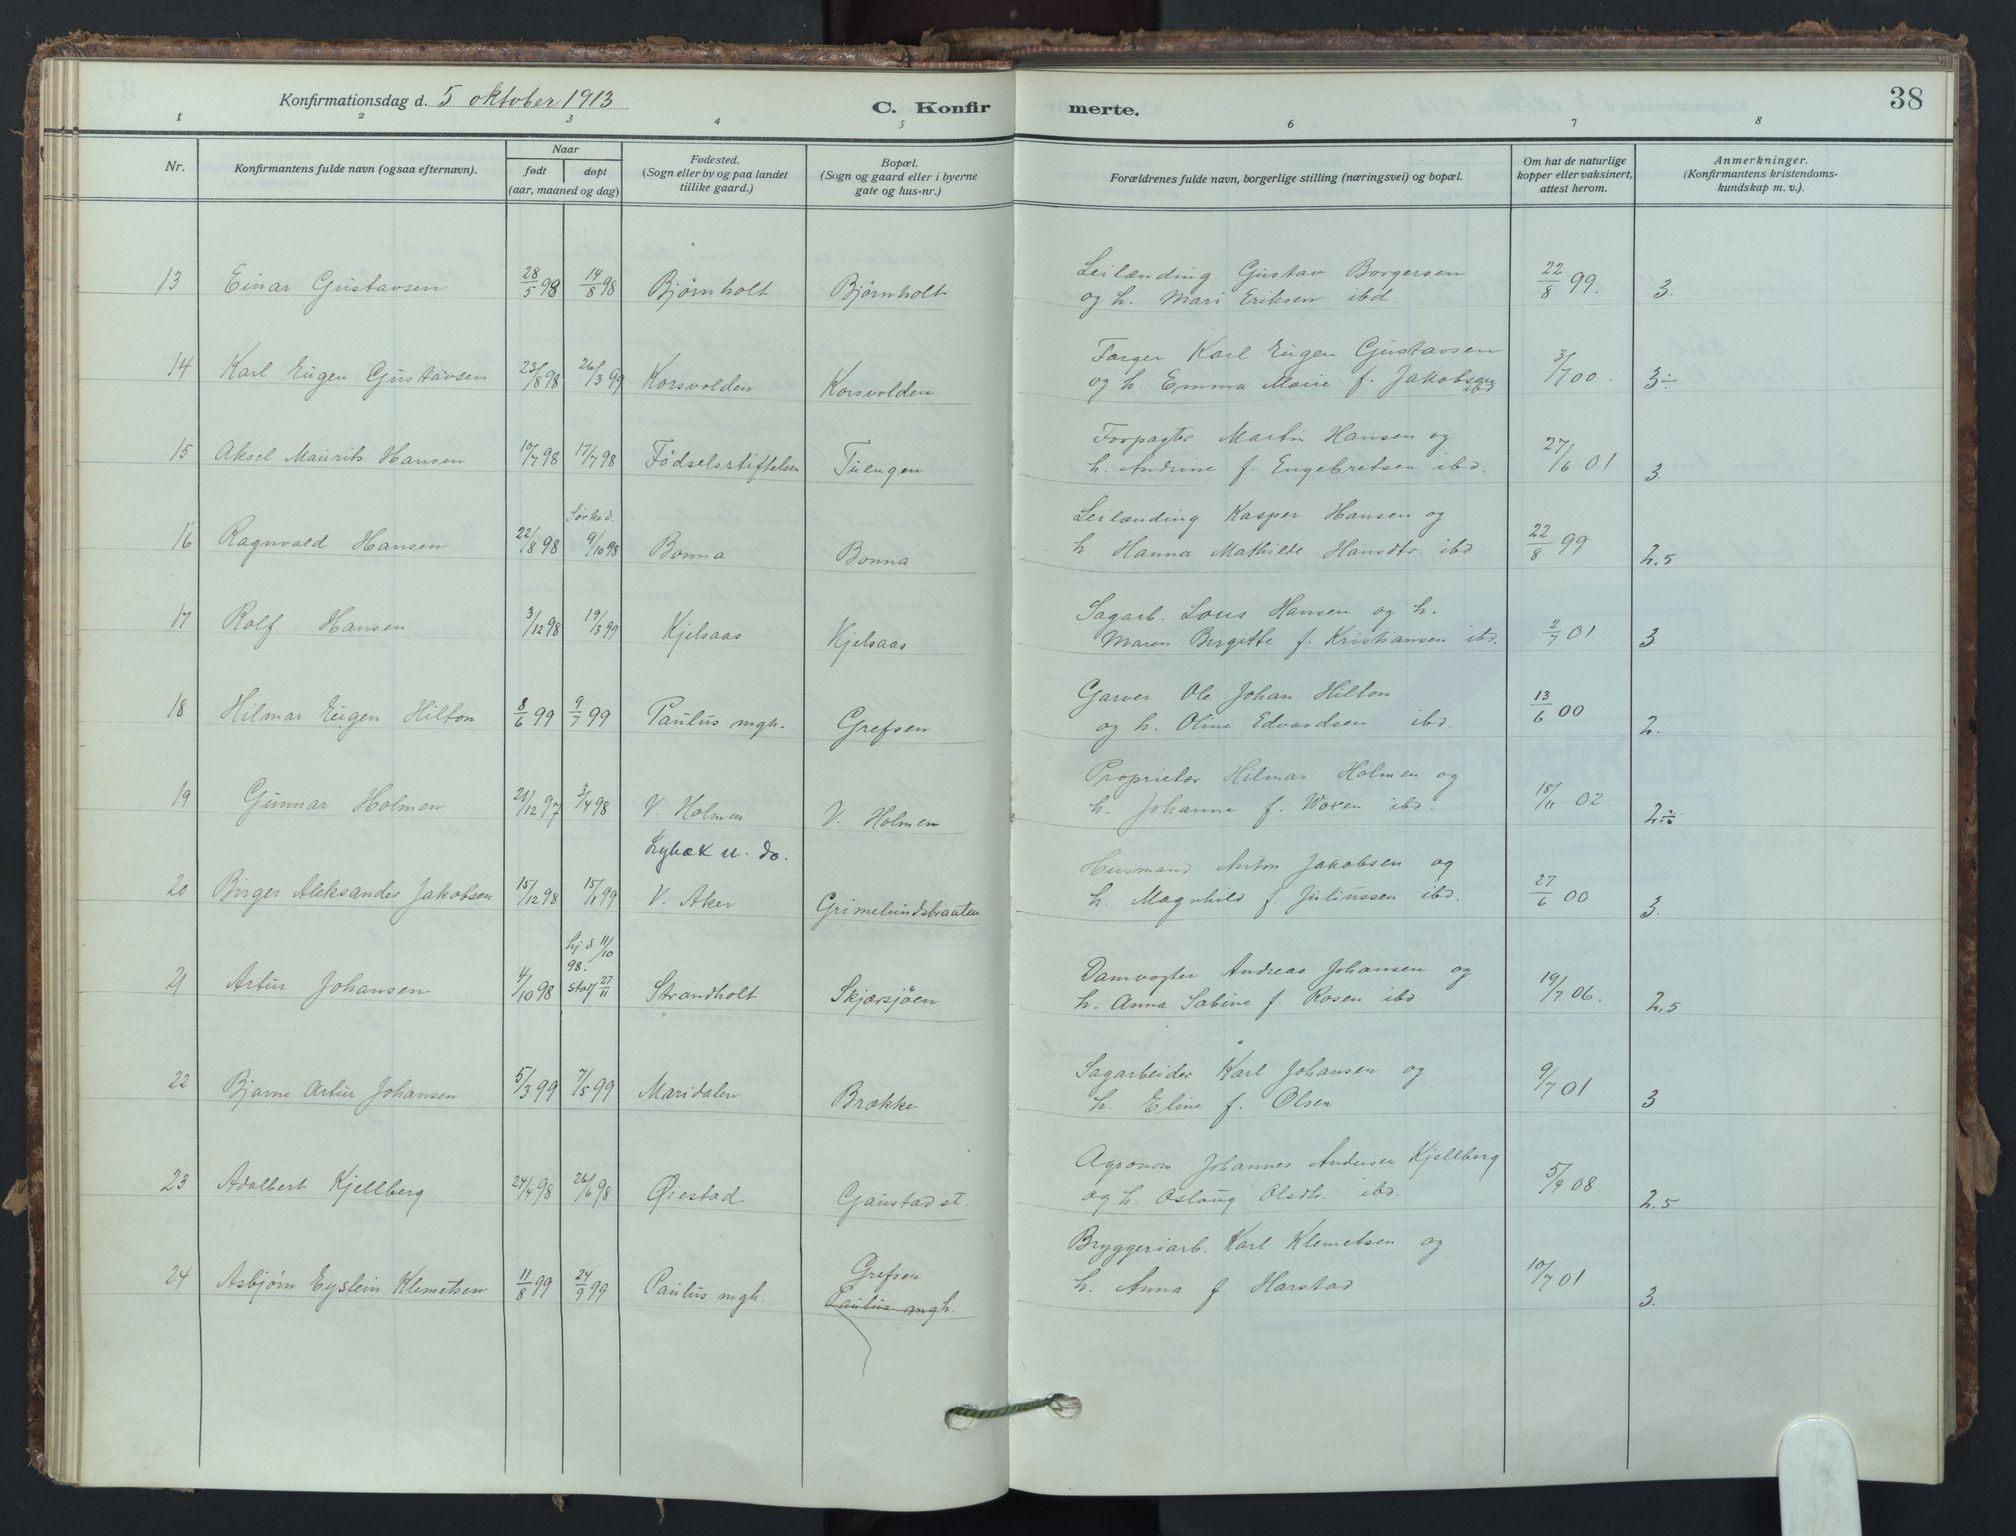 Konfirmationsdag d. 5 oktober 1913 C. Konfirmerte. 38
1 2 3 4 5 6 7 8
Nr. Konfirmantens fulde navn (ogsaa efternavn). Naar født døpt (aar, maaned og dag) Fødested. (Sogn eller by og paa landet tillike gaard.) Bopæl. (Sogn og gaard eller i byerne gate og hus-nr.) Forældrenes fulde navn, borgerlige stilling (næringsvei) og bopæl. Om hat de naturlige kopper eller vaksinert, attest herom. Anmerkninger. (Konfirmantens kristendoms-kundskap m. v.)
13 Einar Gustavsen 28/5 98 14/8 98 Bjørnholt Bjørnholt Leilænding Gustav Borgersen
og h. Mari Eriksen ibd. 22/8 99. 3.
14 Karl Eugen Gustavsen 23/8 98 26/3 99 Korsvolden Korsvolden Farger Karl Eugen Gustavsen
og h. Emma Marie f. Jakobsen ibd 3/7 00. 3÷
15 Aksel Maurits Hansen 10/7 98 17/7 98 Fødselsstiftelsen Tuengen Forpagter Martin Hansen og
h. Andrine f. Engebretsen ibd. 27/6 01 3.
16 Ragnvald Hansen 22/8 98 Sørked. 9/10 98 Bonna Bonna Leilænding Kasper Hansen og
h. Hanna Mathilde Hansdtr. ibd. 22/8 99 2.5
17 Rolf Hansen 3/12 98 19/3 99 Kjelsaas Kjelsaas Sagarb. Lous Hansen og h.
Maren Birgitte f. Kristiansen ibd. 2/7 01. 3
18 Hilmar Eugen Hilton 8/6 99 9/7 99 Paulus mgh. Grefsen Garver Ole Johan Hilton
og h. Oline Edvardsen ibd. 13/6 00 2.
19 Gunnar Holmen 21/12 97 3/4 98 V. Holmen V. Holmen Proprietær Hilmar Holmen og
h. Johanne f. Woxen ibd. 18/11 02. 2.÷
Lybæk u. do.
20 Birger Aleksander Jakobsen 15/12 98 15/1 99 V. Aker Grimelundsbraaten Husmand Anton Jakobsen og
h. Magnhild f. Juliussen ibd. 27/6 00 3.
21 Artur Johansen 4/10 98 hj.d 11/10 98. stadf 27/11 Strandholt Skjærsjøen Damvogter Andreas Johansen og
h. Anna Sabine f. Rosen ibd. 19/7 06. 2.5
22 Bjarne Artur Johansen 5/3 99 7/5 99 Maridalen Brække Sagarbeider Karl Johansen og
h. Eline f. Olsen 9/7 01 3
23 Adalbert Kjellberg 24/4 98 26/6 98 Øiestad Gaustad st. Agronom Johannes Andersen Kjellberg
og h. Aslaug Olsdtr. ibd. 5/9 08. 2.5
24 Asbjørn Eystein Klemetsen 11/8 99 24/9 99 Paulus mgh. Grefsen
Paulus mgh. Bryggeriarb. Karl Klemetsen og
h. Anna f. Harstad 10/7 01 3.